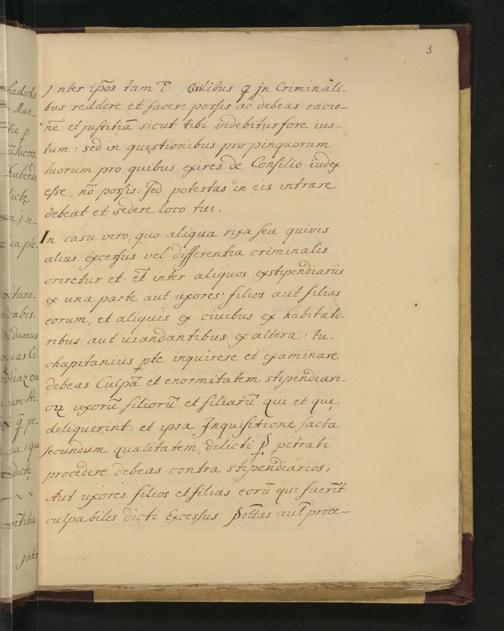 3
Inter ip̃os tam ĩ Ciuilibus q̃ jn Criminali-
bus reddere et facere possis ac debeas racio-
ñe et justitiã sicut tibi indebitur fore ius-
tum: sed in questionibus propinquorum
tuorum pro quibus exires de Consilio iudex
esse nõ possis: sed potestas in eis intrare
debeat et sedere loco tui.
In casu vero, quo aliqua rixa seu quivis
alius excessus vel differentia criminalis
oriretur et et̃ inter aliquos exstipendiariis
ex una parte aut uxores: filios aut filias
eorum, et aliquis ex ciuibus ex habitato-
ribus aut uiandantibus ex altera: tu
chapitanius ple inquirere et examinare
debeas Culpã et enormitatem stipendiari-
oꝝ uxorũ filiorũ et filiarũ qui et quę
deliquerint: et ipsa Inquisitione facta
secundum qualitatem delicti ꝑpetrati
procedere debeas contra stipendiarios,
Aut uxores, filios et filias eorũ qui fuerĩt
culpabiles dicti Excessus: Pott̃as aut̃ proce-